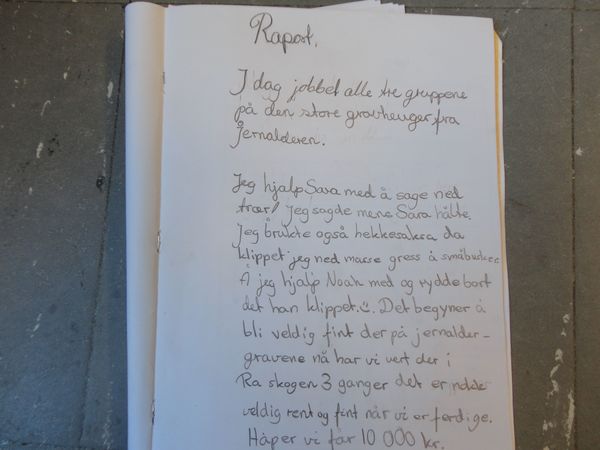 Raport.
I dag jobbet alle tre gruppene
på den store gravhauger fra
jernalderen.
Jeg hjalp Sara med å sage ned
trær/ jeg sagde mens Sara hålte.
Jeg brukte også hekkesaksa da
klippet jeg ned masse gress å småbusker.
Å jeg hjalp Noah med og rydde bort
det han klippet.☺. Det begyner å
bli veldig fint der på jernalder-
gravene nå har vi vert der i
Ra skogen 3 ganger det er
veldig rent og fint når vi er ferdige.
Håper vi får 10 000 kr.